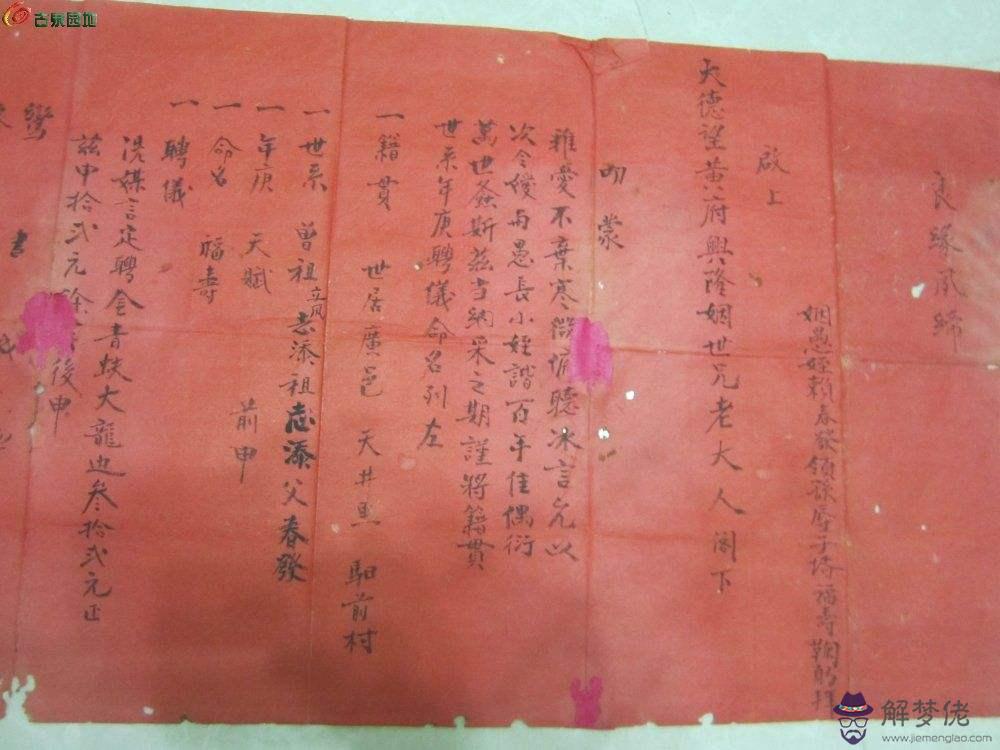 良緣夙締
姻愚姪賴春發領孫辱子壻福壽鞠躬拜
啟上
大德望黃府興隆姻世兄老大人閣下
叨蒙
雅愛不棄寒微 聽冰言允以
次令嬡與愚長小姪諧百年佳偶衍
萬世螽斯茲当納采之期謹將籍貫
世系年庚聘儀命名列左
一籍貫 世居廣邑 天井 前村
一世系 曾祖立凤志添祖志添父春發
一年庚 天賦 前申
一命名 福壽
一聘儀
凴媒言定聘金青蚨大龍边叁拾弍元正
茲申拾弍元餘 後申
鸞書
古泉园地
解梦佬
www.jiemenglao.com